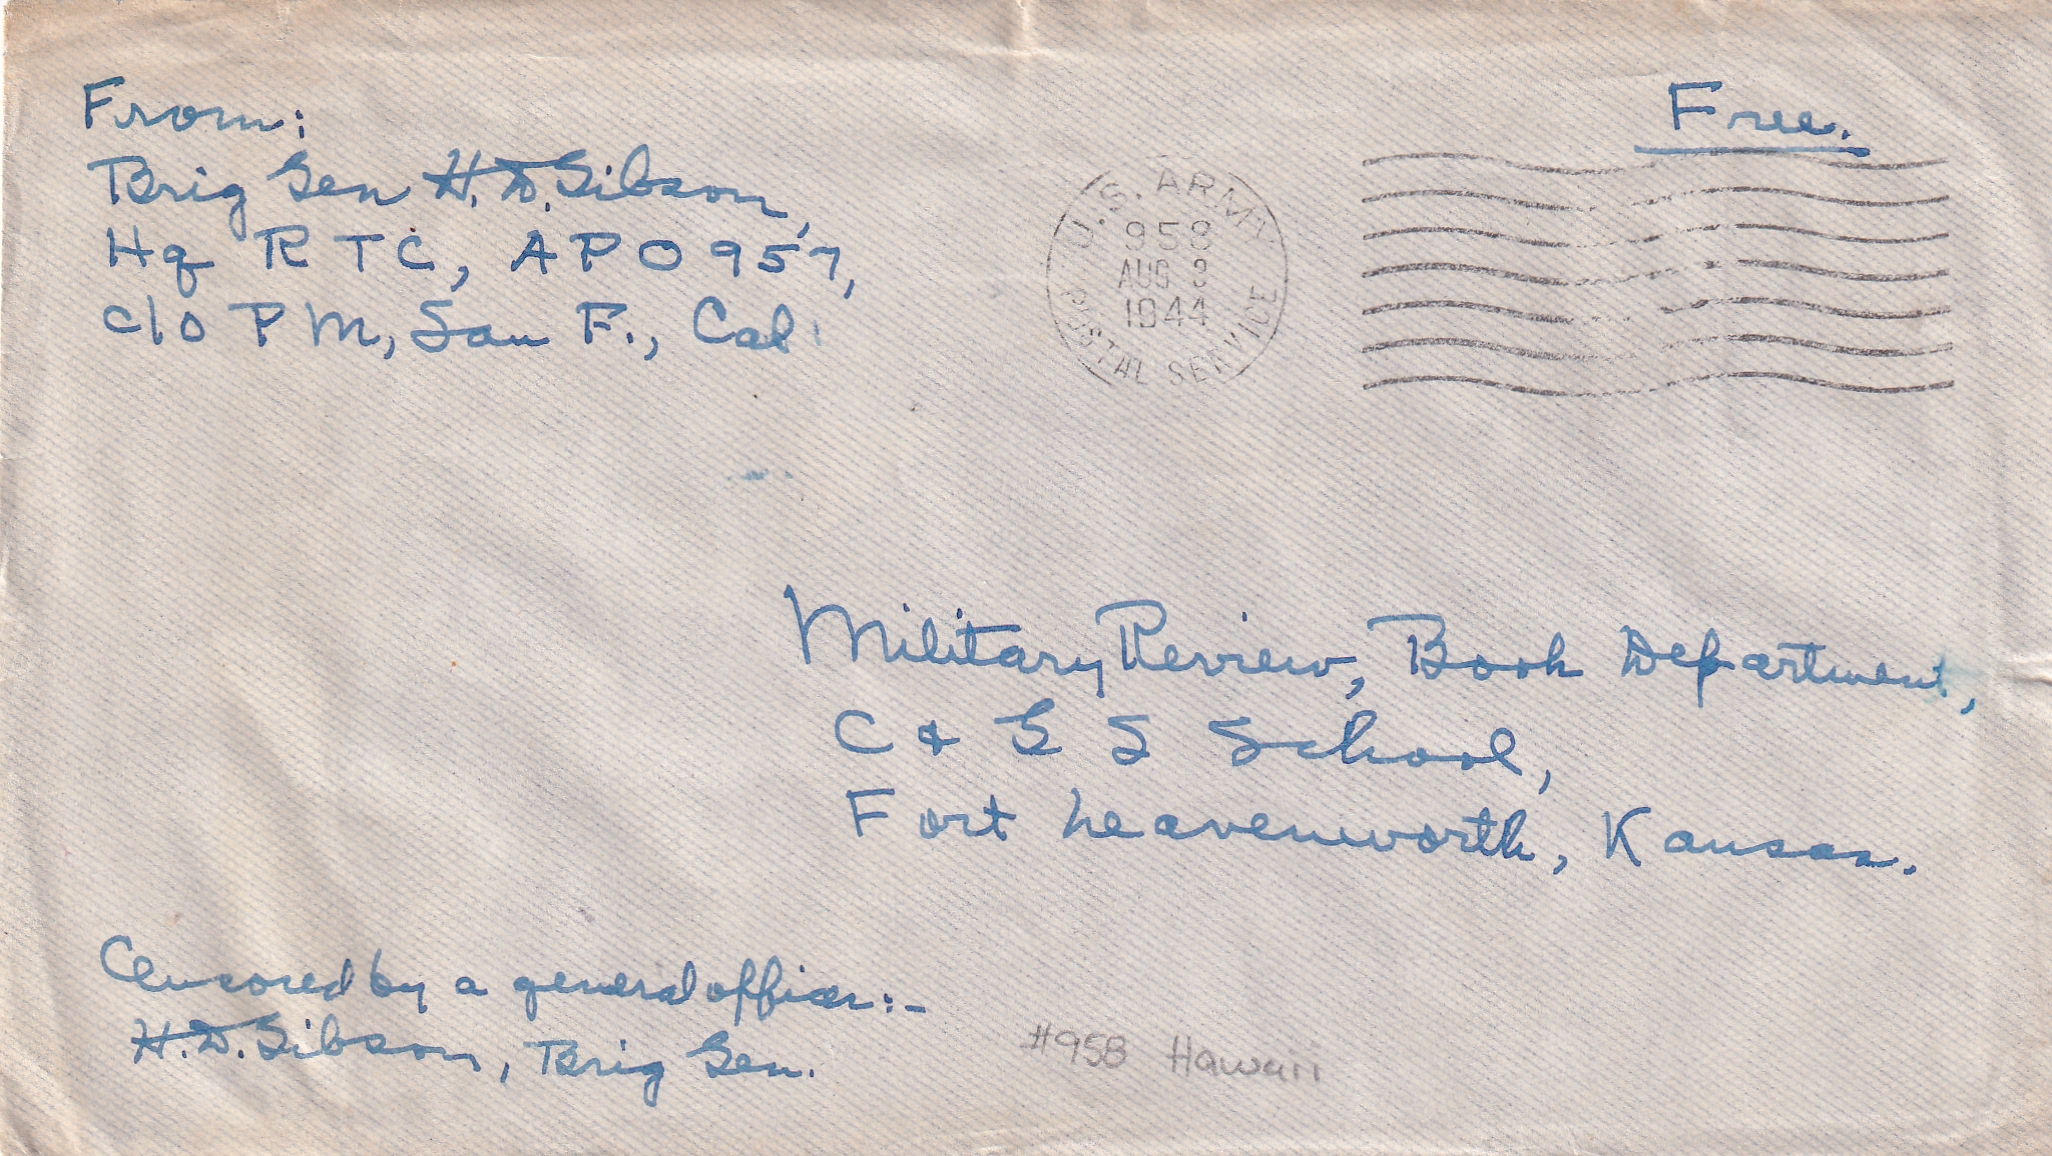 From:
Free.
Brig Gen H. D. Gibson,
Hq RTC, APO 957,
c/o PM, San F., Cal.
U.S. ARMY
958
AUG 3
1944
POSTAL SERVICE
Military Review, Book Department,
C & G S School,
Fort Leavenworth, Kansas.
Censored by a general officer:-
H. D. Gibson, Brig Gen.
#958 Hawaii